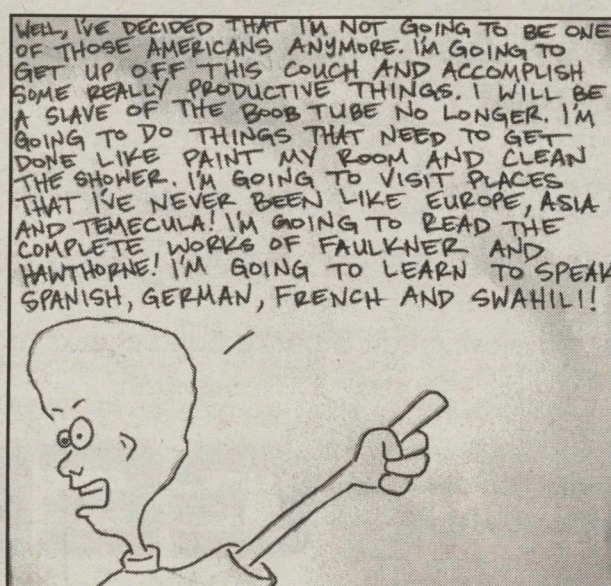 WELL, I'VE DECIDED THAT I'M NOT GOING TO BE ONE
OF THOSE AMERICANS ANYMORE. I'M GOING TO
GET UP OFF THIS COUCH AND ACCOMPLISH
SOME REALLY PRODUCTIVE THINGS. I WILL BE
A SLAVE OF THE BOOB TUBE NO LONGER. I'M
GOING TO DO THINGS THAT NEED TO GET
DONE LIKE PAINT MY ROOM AND CLEAN
THE SHOWER. I'M GOING TO VISIT PLACES
THAT I'VE NEVER BEEN LIKE EUROPE, ASIA
AND TEMECULA! I'M GOING TO READ THE
COMPLETE WORKS OF FAULKNER AND
HAWTHORNE! I'M GOING TO LEARN TO SPEAK
SPANISH, GERMAN, FRENCH AND SWAHILI!